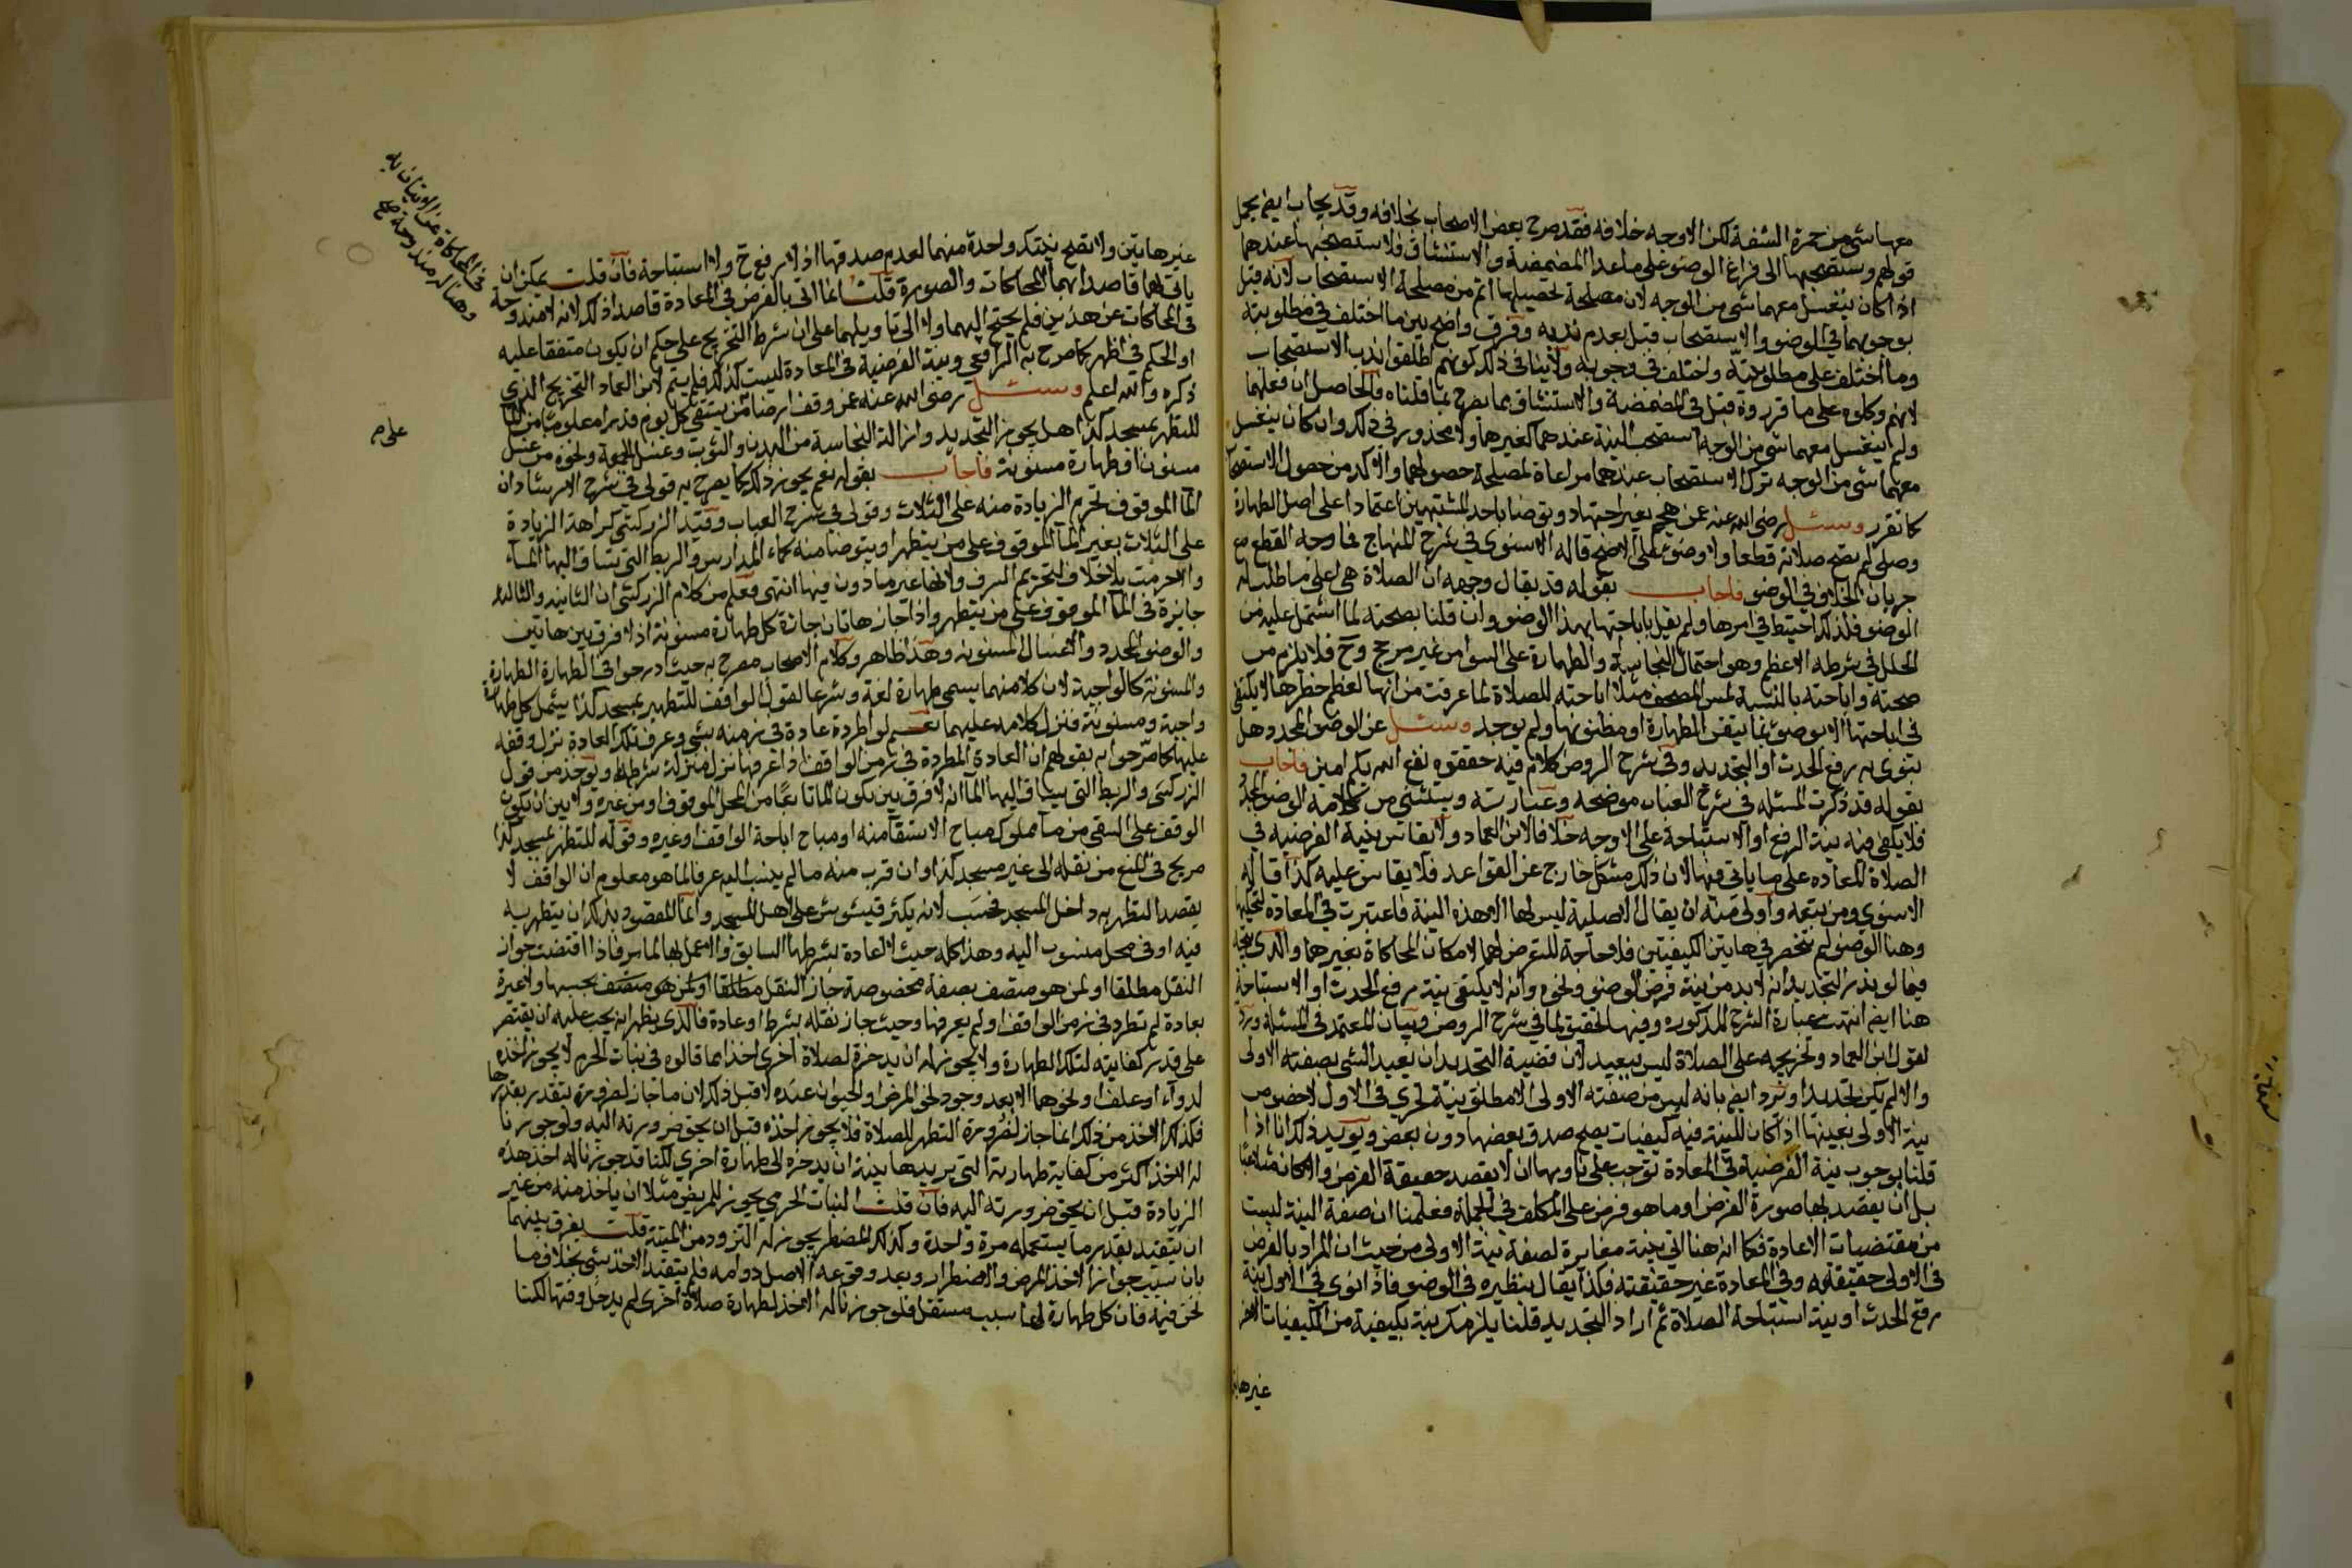 معها شي من حمرة الشفة لكن الاوجه خلافه فقد صرح بعض الاصحاب بخلافه وقد يجاب ايضا بحمل
قولهم ويستصحبها الى فراغ الوضو على ما عدا المضمضة والاستنشاق فلا يستصحبها عندهما
اذا كان ينغسل معهما شي من الوجه لان مصلحة تحصيلهما اتم من مصلحة الاستصحاب لانه قيل
بوجوبهما في الوضو والاستصحاب قيل بعدم ندبه وفرق واضح بين ما اختلف في مطلوبيته
وما اختلف على مطلوبيته واختلف في وجوبه ولا ينافي ذلك كونهم اطلقوا ندب الاستصحاب
لانهم وكلوه على ما قرروه قبل في المضمضة والاستنشاق بما يصرح بما قلناه فالحاصل ان فعلهما
ولم ينغسل معهما شي من الوجه استصحب النية عندهما كغيرهما ولا محذور في ذلك وان كان ينغسل
معهما شي من الوجه ترك الاستصحاب عندهما مراعاة لمصلحة حصولهما والاكد من حصول الاستصحاب
كما تقرر وسئل رضي الله عنه عمن هجم بغير اجتهاد وتوضا باحد المشتبهين اعتمادا على اصل الطهارة
وصلى لم تصح صلاته قطعا ولا وضوءه على الاصح قاله الاسنوي في شرح المنهاج فما وجه القطع مع
جريان الخلاف في الوضو فاجاب بقوله قد يقال وجهه ان الصلاة هي اعلى ما طلب له
الوضو فلذلك احتيط في امرها ولم يقل باباحتها بهذا الوضو وان قلنا بصحته لما اشتمل عليه من
الخلل في شرطه الاعظم وهو احتمال النجاسة والطهارة على السوا من غير مرجح وح فلا يلزم من
صحته واباحته بالنسبة لمس المصحف مثلا اباحته للصلاة لما عرفت من انها لعظم خطرها لا يكتفى
في اباحتها الا بوضوء بما تيقن الطهارة او مظنونها ولم يوجد وسئل عن الوضو المجدد هل
ينوى به رفع الحدث او التجديد وفي شرح الروض كلام فيه حققوه نفع الله بكم امين فاجاب
بقوله قد ذكرت المسئله في شرح العباب موضحه وعبارته ويستثنى من كلامه الوضو المجدد
فلا يكفي فيه نية الرفع او الاستباحة على الاوجه خلافا لابن العماد ولا يقاس بنية الفرضيه في
الصلاة المعاده على ما ياتي فيها لان ذلك مشكل خارج عن القواعد فلا يقاس عليه كذا قاله
الاسنوي ومن تبعه واولى منه ان يقال الاصلية ليس لها الا هذه النية فاعتبرت في المعادة لتحكيها
وهنا الوضو لم تنحصر في هاتين الكيفيتين فلا حاجة للتعرض لهما لامكان المحاكاة بغيرهما والذي يتجه
فيما لو نذر التجديد انه لا بد من نية فرض الوضو ونحوه وانه لا يكتفى بنية رفع الحدث او الاستباحة
هنا ايضا انتهت عبارة الشرح المذكوره وفيها تحقيق لما في شرح الروض وبيان للمعتمد في المسئلة ويرد
لقول ابن العماد وتخريجه على الصلاة ليس ببعيد لان قضية التجديد ان يعيد الشي بصفته الاولى
والا لم يكن تجديدا ويرد ايضا بانه ليس من صفته الاولى الا مطلق نية تجزي في الاول لا خصوص
نية الاولى بعينها اذا كان للنية فيه كيفيات يصح صدق بعضها دون بعض ويويد ذلك انا اذا
قلنا بوجوب نية الفرضية في المعادة توجب على ناويها ان لا يقصد حقيقة الفرض والا كان متلاعبا
بل ان يقصد بها صورة الفرض او ما هو فرض على المكلف في الجملة فعلمنا ان صفة النية ليست
من مقتضيات الاعادة فكما انه هنا اتي بنية مغايرة لصفة نية الاولى من حيث ان المراد بالفرض
في الاولى حقيقته وفي المعادة غير حقيقته فكذا يقال بنظيره في الوضو فاذا نوى في الاول بنية
رفع الحدث او نية استباحة الصلاة ثم اراد التجديد قلنا يلزمك نية بكيفية من الكيفيات الاخر
غيرها
غير هاتين ولا تصح بتلك واحدة منهما لعدم صدقها اذ لا رفع ح ولا استباحة فان قلت يمكن ان
ياتي لهما قاصدا بهما المحاكات والصورة قلت انما اتي بالفرض في المعادة قاصدا ذلك لانه لا مندوحة
في المحاكات عن هذين فلم يحتج اليهما ولا الى تاويلهما على ان شرط التخريج على حكم ان يكون متفقا عليه
او الحكم في اظهر كما صرح به الرافعي ونية الفرضية في المعادة ليست كذلك فلم يتم لابن العماد التخريج الذي
ذكره والله اعلم وسئل رضي الله عنه عمن وقف ارضا لمن يستقي كل يوم قدرا معلوما من الما
للتطهر بمسجد كذا هل يجوز التجديد وازالة النجاسة من البدن والثوب وغسل الجمعة ونحوه من غسل
مسنون او طهارة مسنونة فاجاب بقوله نعم يجوز ذلك كما يصرح به قولي في شرح الارشاد ان
الما الموقوف تحرم الزيادة منه على الثلاث وقولي في شرح العباب وقيد الزركشي كراهة الزيادة
على الثلاث بغير الما الموقوف على من يتطهر او يتوضا منه كماء المدارس والربط التي يساق اليها الماء
والا حرمت بلا خلاف لتحريم السرف ولانها غير ماذون فيها انتهى فعلم من كلام الزركشي ان الثانيه والثالثة
جايزة في الما الموقوف على من يتطهر واذا جاز هاتان جازة كل طهارة مسنونة اذ لا فرق بين هاتين
والوضو المجدد والاغسال المسنونه وهذا ظاهر وكلام الاصحاب مصرح به حيث ادرجوا في الطهارة الطهارة
والمسنونة كالواجبة لان كلا منهما يسمى طهارة لغة وشرعا لقول الواقف للتطهير بمسجد كذا يشمل كل طهارة
واجبة ومسنونة فنزل كلامه عليهما نعم لو اطردة عادة في زمنه بشي وعرف تلك العادة نزل وقفه
عليها كما صرحوا به بقولهم ان العادة المطردة في زمن الواقف اذا عرفها تنزل منزلة شرطه ويوخذ من قول
الزركشي والربط التي يساق اليها الما انه لا فرق بين كون الما تابعا من المحل الموقوف او من غيره ولا بين ان يكون
الوقف على السقي من ما مملوك مباح الاستقا منه او مباح اباحة الواقف او غيره وقوله للتطهر بمسجد كذا
صريح في المنع من نقله الى غير مسجد كذا وان قرب منه ما لم ينسب اليه عرفا لما هو معلوم ان الواقف لا
يقصد التطهر به داخل المسجد فحسب لانه يكثر فيشوش على اهل المسجد وانما المقصود بذلك ان يتطهر به
فيه او في محل منسوب اليه وهذا كله حيث لا عادة بشرطها السابق والا عمل بها لما مر فاذا اقتضت جواز
النقل مطلقا او لمن هو متصف بصفة مخصوصة جاز النقل مطلقا او لمن هو متصف بحسبها ولا عبرة
بعادة لم تطرد في زمن الواقف او لم يعرفها وحيث جاز نقله بشرط او عادة فالذي يظهر انه يجب عليه ان يقتصر
على قدر كفايته لتلك الطهارة ولا يجوز له ان يدخره لصلاة اخرى اخذا مما قالوه في نبات الحرم لا يجوز اخذه
لدواء او علف او نحوهما الا بعد وجود نحو المرض او الحيوان عنده لا قبل ذلك لان ما جاز لضرورة يتقدر بقدرها
فكذلك الاخذ من ذلك انما جاز لضرورة التطهر للصلاة فلا يجوز اخذه قبل ان يحق ضرورته اليه ولو جوزنا
له الاخذ اكثر من كفاية طهارته التي يريدها بنية ان يدخره الى طهارة اخرى لكنا قد جوزنا له اخذ هذه
الزيادة قبل ان يحق ضرورته اليه فان قلت النبات الحرمي يجوز للمريض مثلا ان ياخذ منه من غير
ان يتقيد بقدر ما يستعمله مرة واحدة وكذلك المضطر يجوز له التزود من الميتة قلت يفرق بينهما
بان سبب جواز الاخذ المرض والاضطرار وبعد وقوعه الاصل دوامه فلم يتقيد الاخذ بشي بخلاف ما
نحن فيه فان كل طهارة لها سبب مستقل فلو جوزنا له الاخذ لطهارة صلاة اخرى لم يدخل وقتها لكنا
في المحاكاة عن الاتيان به
وهنا له مندوحة صح
على م